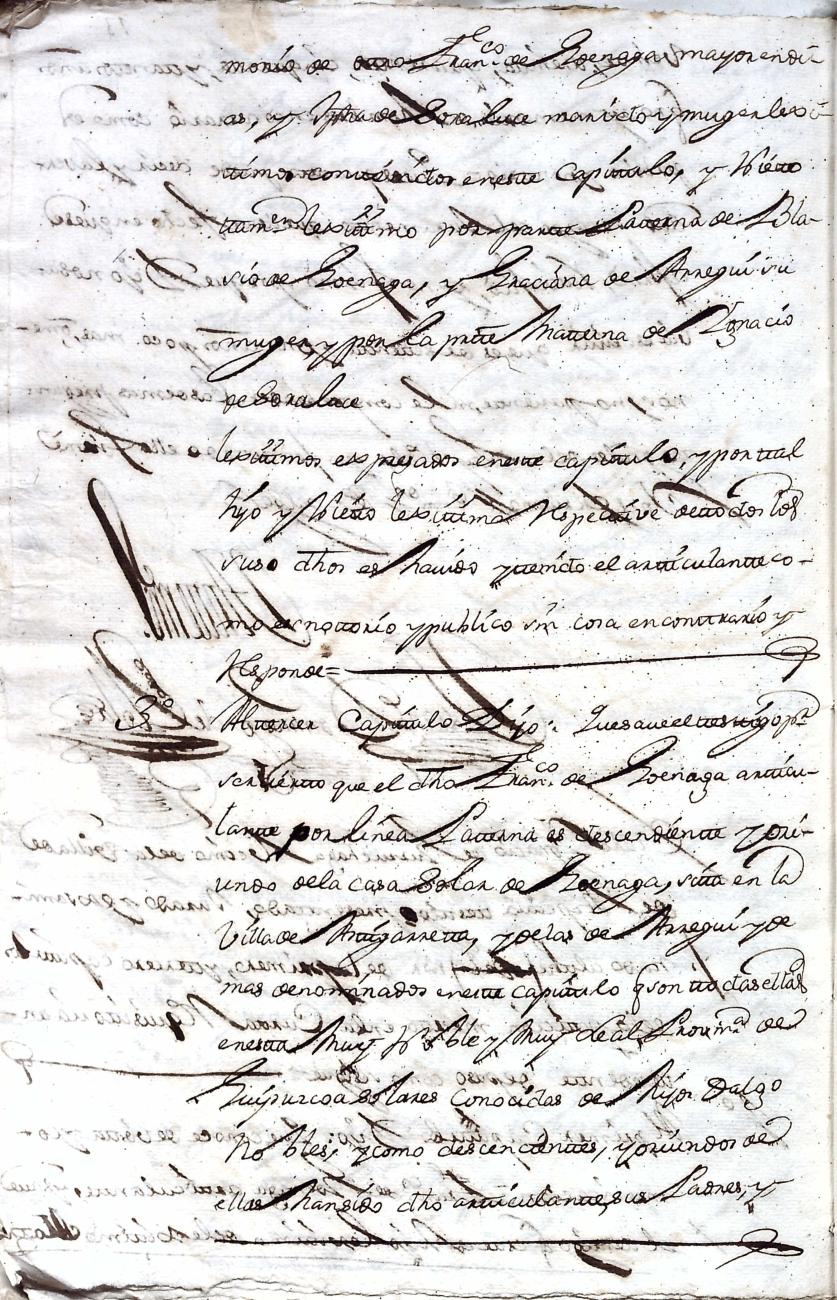 monio de otro Fran.co de Zoenaga mayor en di-
as, y Jpha de Soraluce marido y muger lexi-
timos contenidos en este Capitulo, y Nieto
tam.en lexitimo por parte Paterna de Bla-
sio de Zoenaga, y Graciana de Arregui su
muger y por la prte Materna de Ignacio
de Soraluce
lexitimos expresados en este capitulo, y por tal
hijo y Nieto lexitimo Respective de todos los
suso dhos es havido y tenido el articulante co-
mo es notorio y publico sin cosa en contrario y
Responde=
3o
Al tercer Capitulo Dijo: Que save el testigo pr
ser cierto que el dho Fran.co de Zoenaga articu-
lante por linea Paterna es descendiente y ori-
undo de la casa Solar de Zoenaga, sita en la
Villa de Anzgarreta, y de las de Arregui y de
mas denominados en este capitulo q son todas ellas
en esta Muy Noble y Muy Leal Prov.a de
Guipuzcoa Solares Conocidas de Hijos Dalgo
Nobles; y como descendientes, y oriundos de
ellas han sido dho articulante, sus Padres, y